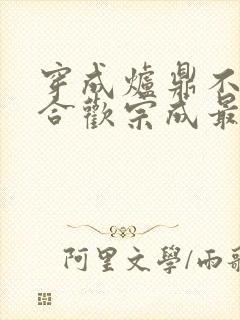 穿成爐鼎不
合歡宗成最
阿里文學/雨歌